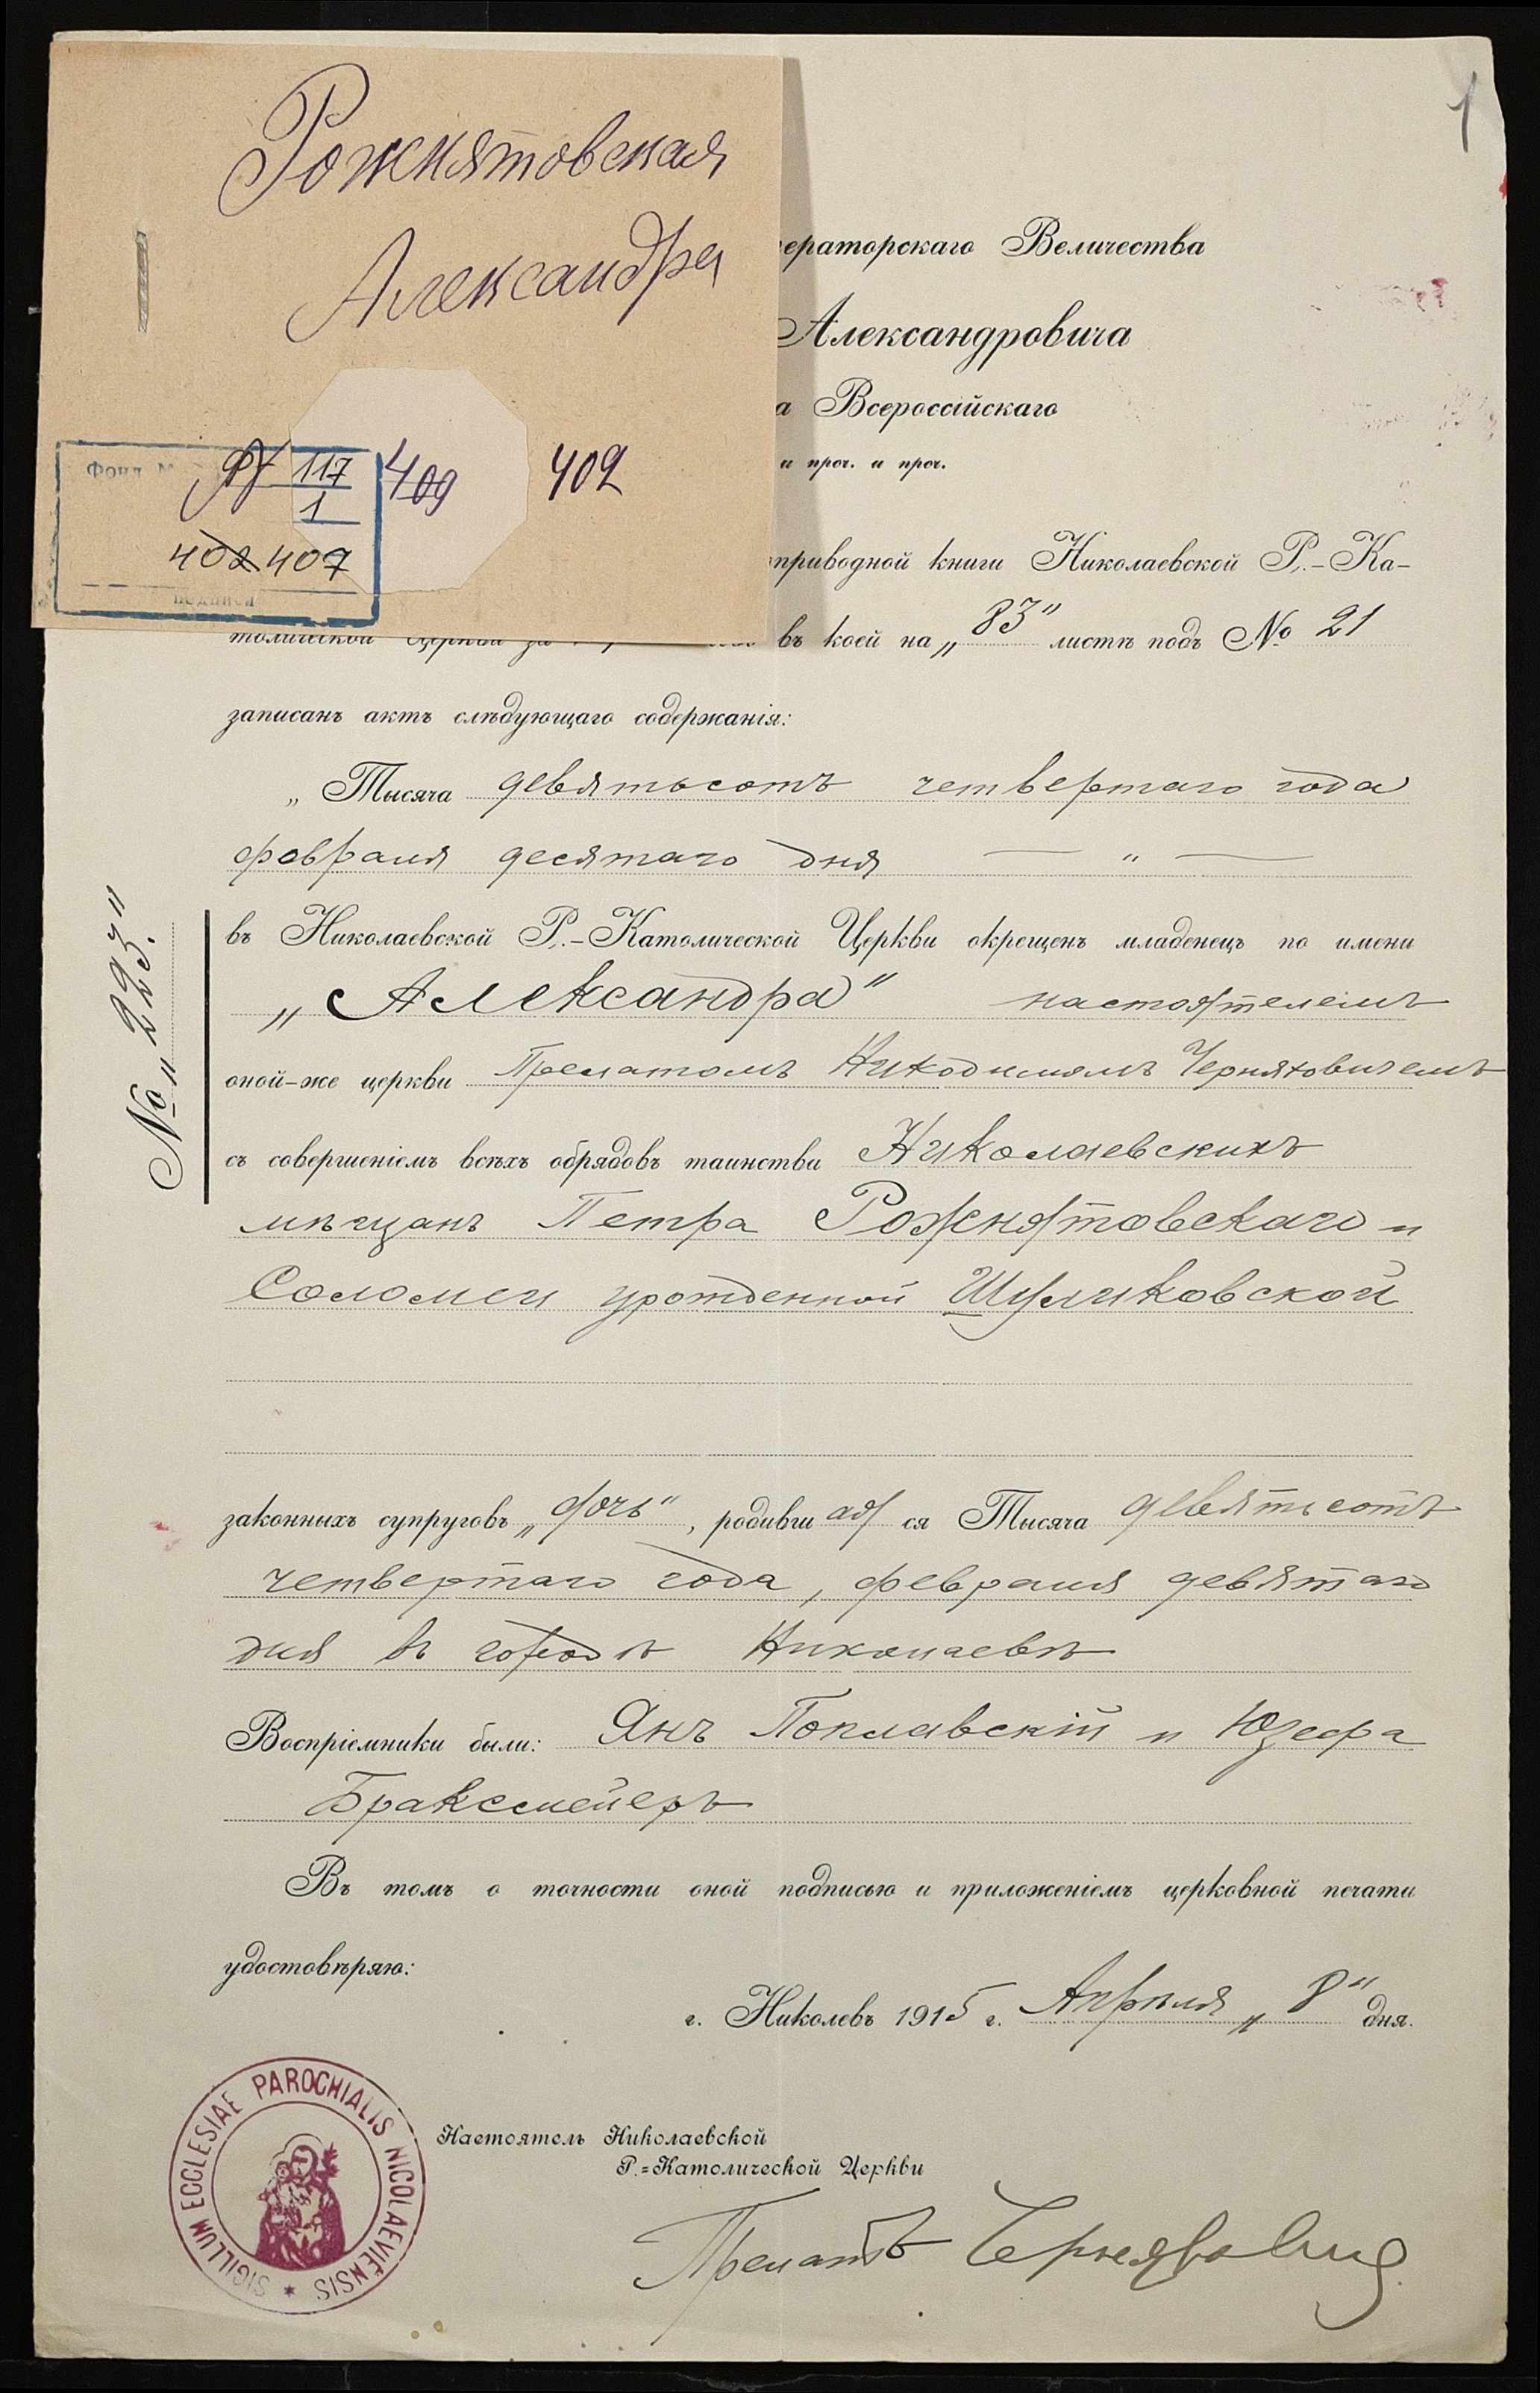 Рожнятовская
Александра
Фонд №
Ф 117
1
409
402
402 407
1
ераторскаго Величества
Александровича
а Всероссійскаго
и проч. и проч.
приводной книги Николаевской Р.-Ка-
толической Церкви за въ коей на „83“ листѣ подъ № 21
записанъ актъ слѣдующаго содержанія:
„Тысяча девятьсотъ четвертаго года
февраля десятаго дня — „ —
въ Николаевской Р.-Католической Церкви окрещенъ младенецъ по имени
„Александра“ настоятелемъ
оной-же церкви Прелатомъ Никодимомъ Черняховичемъ
съ совершеніемъ всѣхъ обрядовъ таинства Николаевскихъ
мѣщанъ Петра Рожнятовскаго и
Соломеи урожденной Шуликовской
законныхъ супруговъ „дочь“, родившаяся Тысяча девятьсотъ
четвертаго года, февраля девятаго
дня въ городѣ Николаевѣ
Воспріемники были: Янъ Поплавскій и Юзефа
Браксмейеръ
Въ томъ о точности оной подписью и приложеніемъ церковной печати
удостовѣряю:
г. Николевъ 1915 г. Апрѣля „8“ дня.
№ „223.“
Настоятель Николаевской
Р.=Католической Церкви
Прелатъ Черняхович
SIGILLUM ECCLESIAE PAROCHIALIS NICOLAEVIENSIS